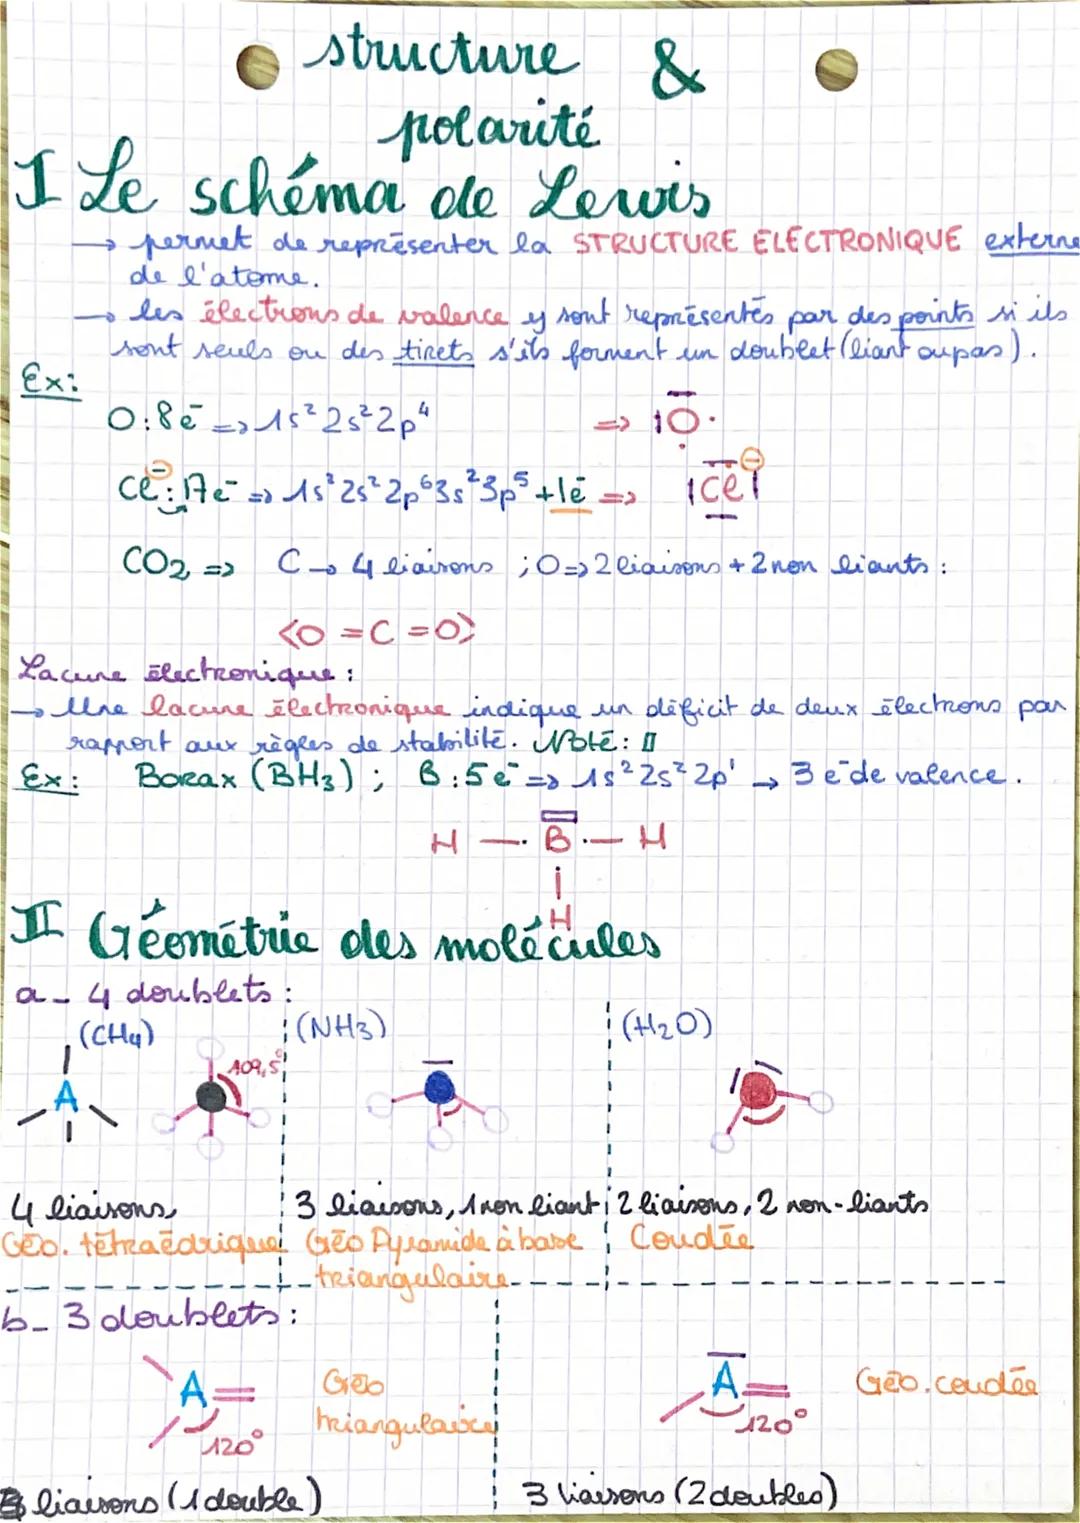 structure &
polarité
I Le schéma de Lewis
→ permet de représenter la STRUCTURE ELECTRONIQUE externe
de l'atome.
→ les électrons de valence y sont représentés par des points si ils
sont seuls ou des tirets s'ils forment un doublet (liant ou pas).
Ex:
O : 8e⁻ => 1s² 2s² 2p⁴ => |O·
Cl⁻ : 17e⁻ => 1s² 2s² 2p⁶ 3s² 3p⁵ + 1e⁻ => |Cl|⊖
CO₂ => C → 4 liaisons ; O => 2 liaisons + 2 non liants :
<O = C = O>
Lacune électronique :
→ Une lacune électronique indique un déficit de deux électrons par
rapport aux règles de stabilité. Noté : ▯
Ex : Borax (BH3) ; B : 5e⁻ => 1s² 2s² 2p¹ → 3 e⁻ de valence.
H — · B · — H
H
II Géométrie des molécules
a - 4 doublets :
(CH4) (NH3) (H2O)
A 109,5°
4 liaisons 3 liaisons, 1 non liant 2 liaisons, 2 non-liants
Géo. tétraédrique Géo Pyramide à base Coudée
triangulaire
b - 3 doublets :
A = Géo A = Géo. coudée
120° triangulaire 120°
3 liaisons (1 double) 3 liaisons (2 doubles)